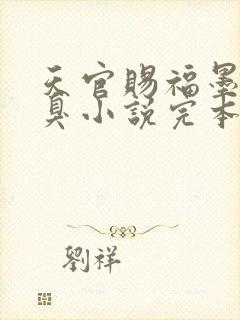 天官賜福墨
臭小說完本
劉祥